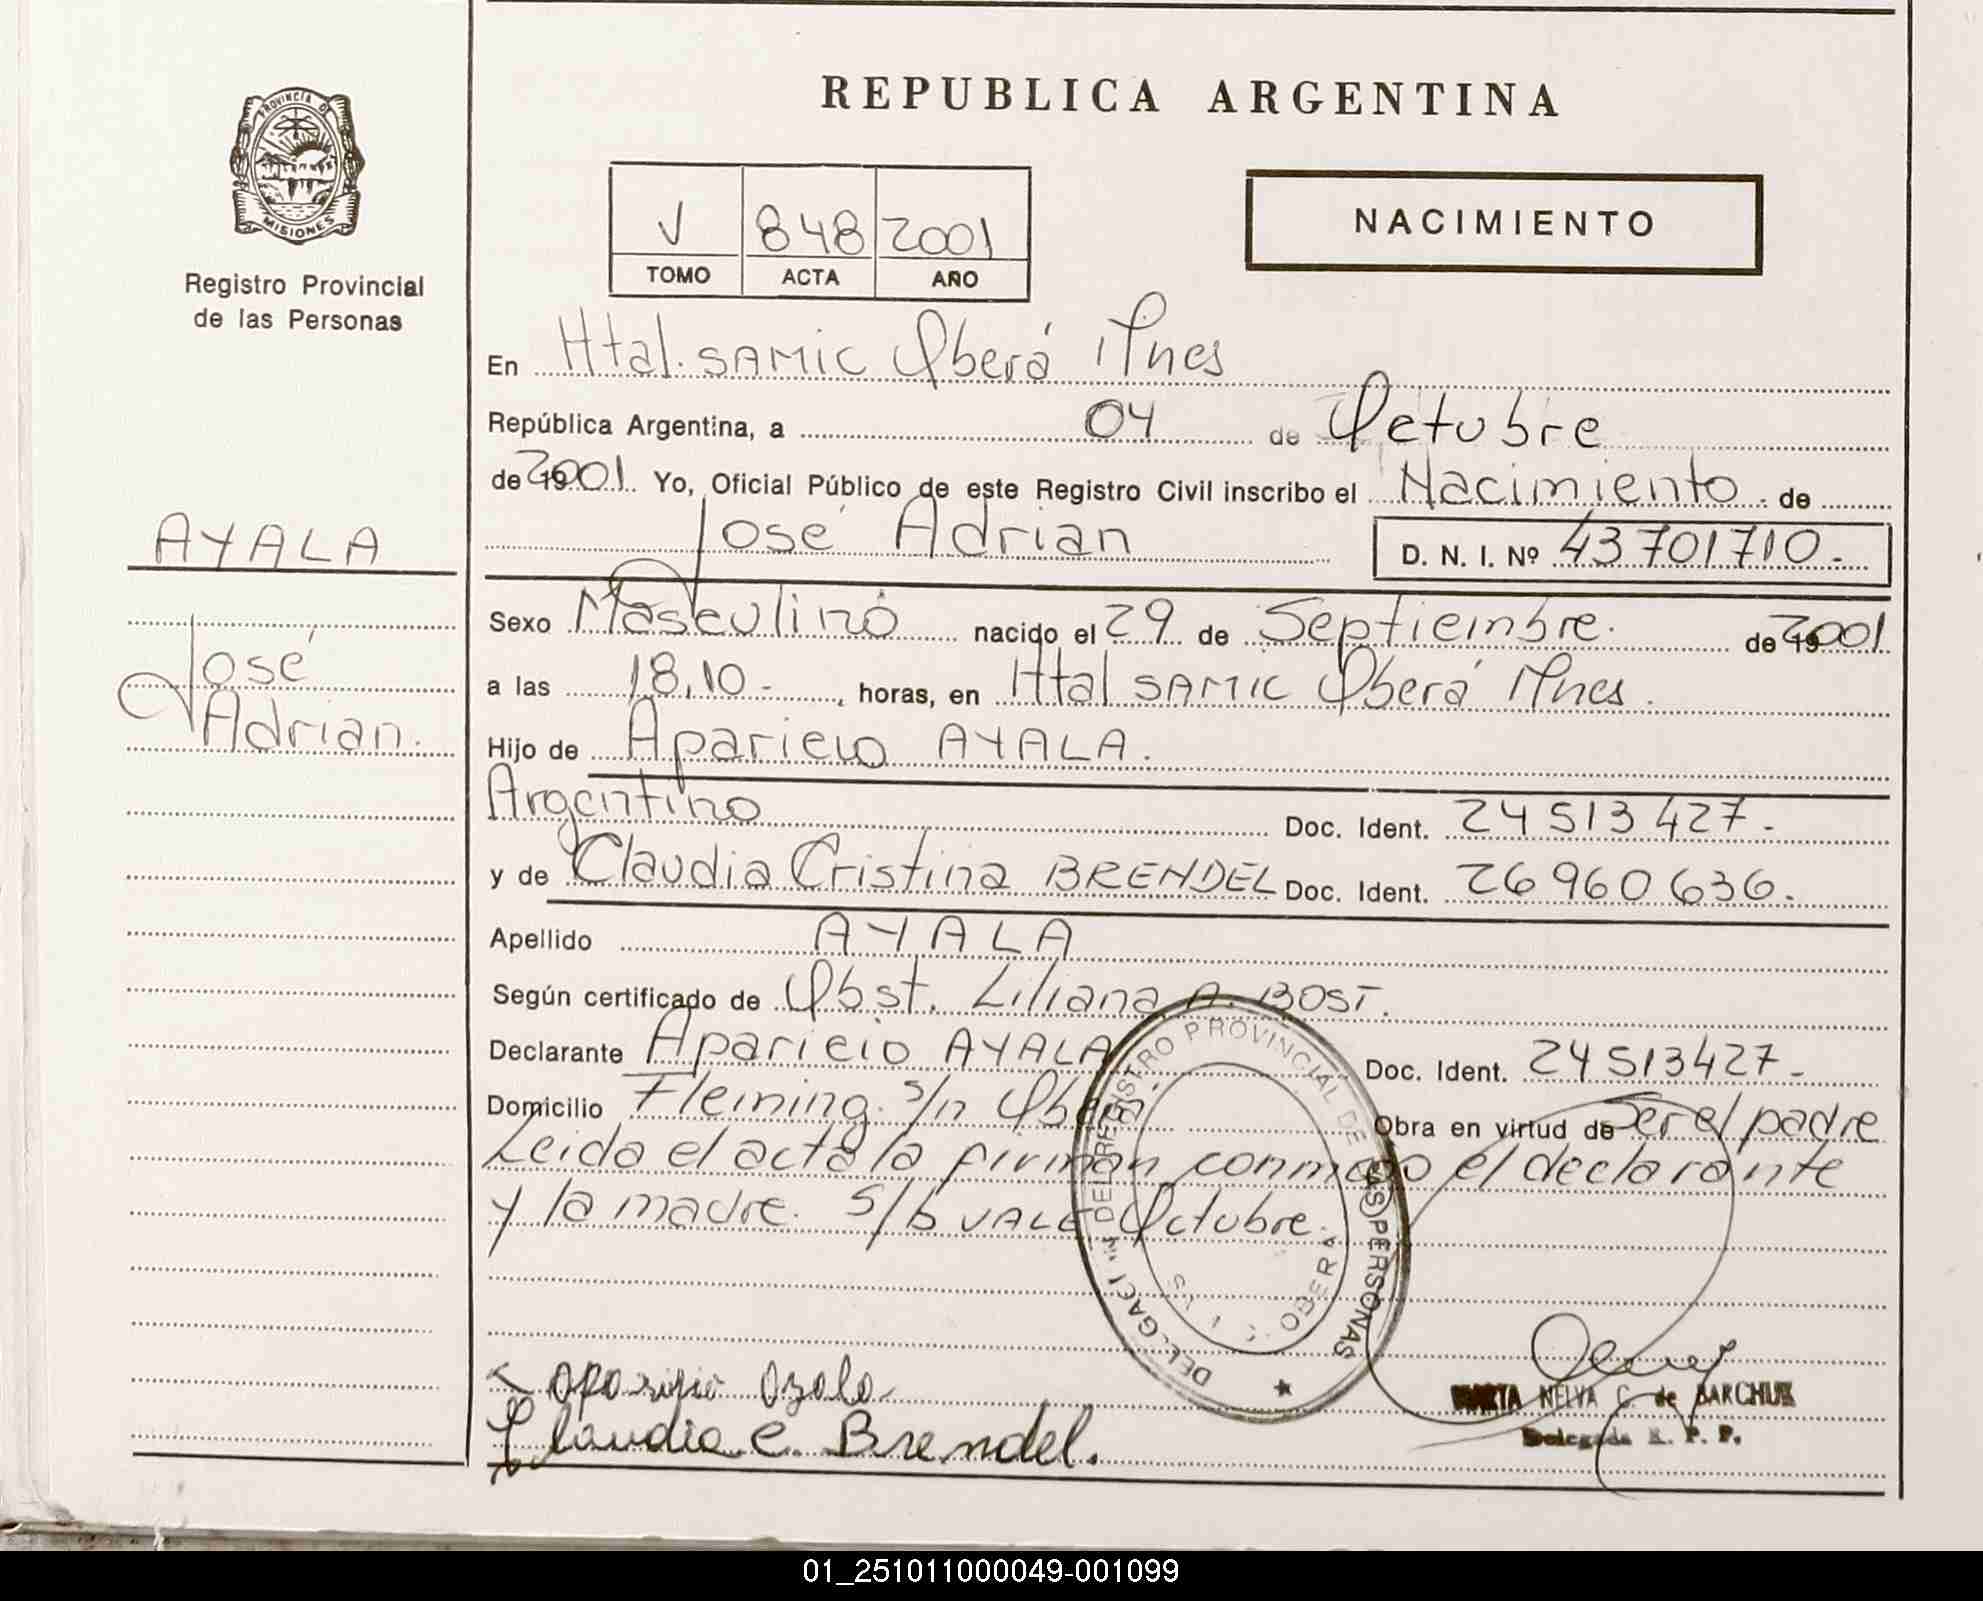 REPUBLICA ARGENTINA
PROVINCIA D
MISIONES
Registro Provincial
de las Personas
V 848 2001
TOMO ACTA AÑO
NACIMIENTO
En Htal. SAMIC Oberá Mnes
República Argentina, a 04 de Octubre
de 2001. Yo, Oficial Público de este Registro Civil inscribo el Nacimiento. de
José Adrian D. N. I. Nº 43701710.-
AYALA
José
Adrian.
Sexo Masculino nacido el 29 de Septiembre. de 2001
a las 18,10.- , horas, en Htal SAMIC Oberá Mnes.
Hijo de Aparicio AYALA.
Argentino Doc. Ident. 24 513 427.-
y de Claudia Cristina BRENDEL Doc. Ident. 26 960 636.
Apellido AYALA
Según certificado de Obst. Liliana A. BOST.
Declarante Aparicio AYALA Doc. Ident. 24 513427.-
Domicilio Fleming. s/n Oberá. Obra en virtud de Ser el padre
Leida el acta la firman conmigo el declarante
y la madre. S/b VALE Octubre.
DELEGACION DEL REGISTRO PROVINCIAL DE LAS PERSONAS
OBERA
Aparicio Ayala
Claudia C. Brendel.
MARTA NELVA C. de BARCHUK
Delegada R. P. P.
01_251011000049-001099